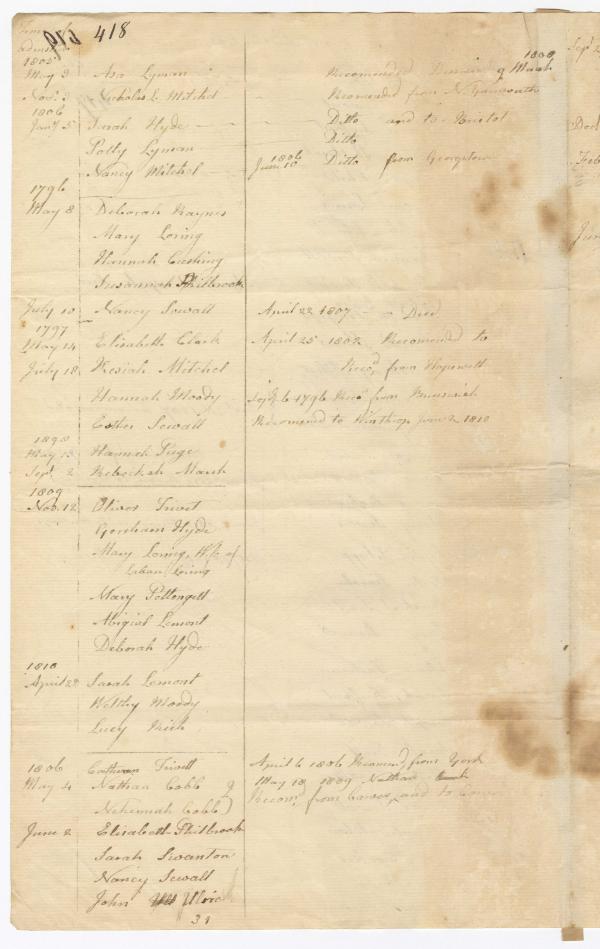 418
Time of
admission
1805
1808
May 3 Asa Lyman Recomended Dismissed March
Nov. 3 Nicholas L. Mitchel Recomended from N. Yarmouth
1806
Jany 5 Sarah Hyde Ditto and to Bristol
Polly Lyman Ditto
Nancy Mitchel June 10 1806 Ditto from Georgetown
1796
May 8 Deborah Raynes
Mary Loring
Hannah Cushing
Susannah Philbrook
July 10 Nancy Sewall April 22 1807 Died
1797
May 14 Elizabeth Clark April 25 1802 Recomend to
July 18 Kesiah Mitchel Recd from Hopewell
Hannah Moody Sept 6 1796 Recd from Brunswick
Esther Sewall Recomend to Winthrop June 2 1810
1898
May 13 Hannah Page
Sept 2 Rebeckah Marsh
1809
Nov. 12 Oliver
Gersham Hyde
Mary Loring, Wife of
Laban Loring
Mary Pettengell
Abigiel Lemont
Deborah Hyde
1810
April 22 Sarah Lemont
Welthy Moody
Lucy
1806 April 6 1806 Recomend from York
May 4 Nathan Cobb May 18 1809 Nathan
Nehemiah Cobb Recomd from and to
June 2 Elisabeth Philbrook
Sarah Swanton
Nancy Sewall
John Ulrick
31
Sept
Dec
Feb
June